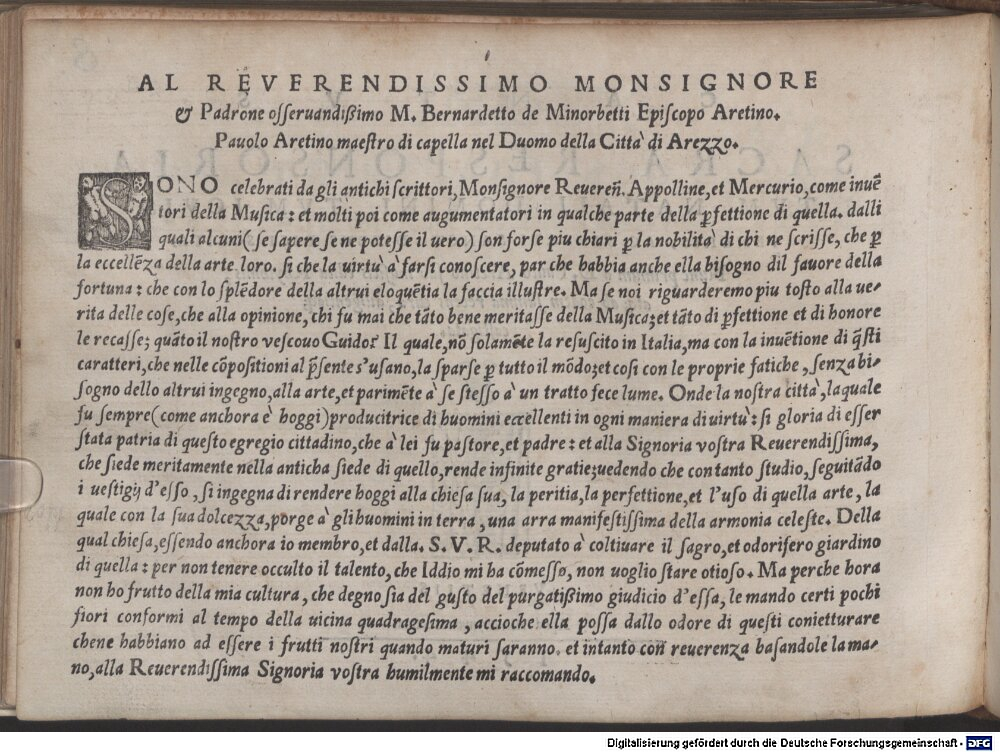 AL REVERENDISSIMO MONSIGNORE
& Padrone osseruandißimo M. Bernardetto de Minorbetti Episcopo Aretino.
Pauolo Aretino maestro di capella nel Duomo della Città di Arezzo.
SONO celebrati da gli antichi scrittori, Monsignore Reuereñ. Appolline, et Mercurio, come inuē
tori della Musica: et molti poi come augumentatori in qualche parte della ꝑfettione di quella. dalli
quali alcuni (se sapere se ne potesse il uero) son forse piu chiari ꝑ la nobilità di chi ne scrisse, che ꝑ
la eccellēza della arte loro. si che la uirtù à farsi conoscere, par che habbia anche ella bisogno dil fauore della
fortuna: che con lo splēdore della altrui eloquētia la faccia illustre. Ma se noi riguarderemo piu tosto alla ue-
rita delle cose, che alla opinione, chi fu mai che tāto bene meritasse della Musica; et tāto di ꝑfettione et di honore
le recasse; quāto il nostro vescouo Guido? Il quale, nō solamēte la resuscito in Italia, ma con la inuētione di q̃sti
caratteri, che nelle cōpositioni al p̃sente s'usano, la sparse ꝑ tutto il mōdo; et cosi con le proprie fatiche, senza bi-
sogno dello altrui ingegno, alla arte, et parimēte à se stesso à un tratto fece lume. Onde la nostra città, laquale
fu sempre (come anchora è hoggi) producitrice di huomini eccellenti in ogni maniera di uirtù: si gloria di esser
stata patria di questo egregio cittadino, che à lei fu pastore, et padre: et alla Signoria vostra Reuerendissima,
che siede meritamente nella anticha siede di quello, rende infinite gratie; uedendo che con tanto studio, seguitādo
i uestigij d'esso, si ingegna di rendere hoggi alla chiesa sua, la peritia, la perfettione, et l'uso di quella arte, la
quale con la sua dolcezza, porge à gli huomini in terra, una arra manifestissima della armonia celeste. Della
qual chiesa, essendo anchora io membro, et dalla. S. V. R. deputato à coltiuare il sagro, et odorifero giardino
di quella: per non tenere occulto il talento, che Iddio mi ha cōmesso, non uoglio stare otioso. Ma perche hora
non ho frutto della mia cultura, che degno sia del gusto del purgatißimo giudicio d'essa, le mando certi pochi
fiori conformi al tempo della uicina quadragesima, accioche ella possa dallo odore di questi conietturare
chene habbiano ad essere i frutti nostri quando maturi saranno. et intanto con reuerenza basandole la ma-
no, alla Reuerendissima Signoria vostra humilmente mi raccomando.
Digitalisierung gefördert durch die Deutsche Forschungsgemeinschaft - DFG